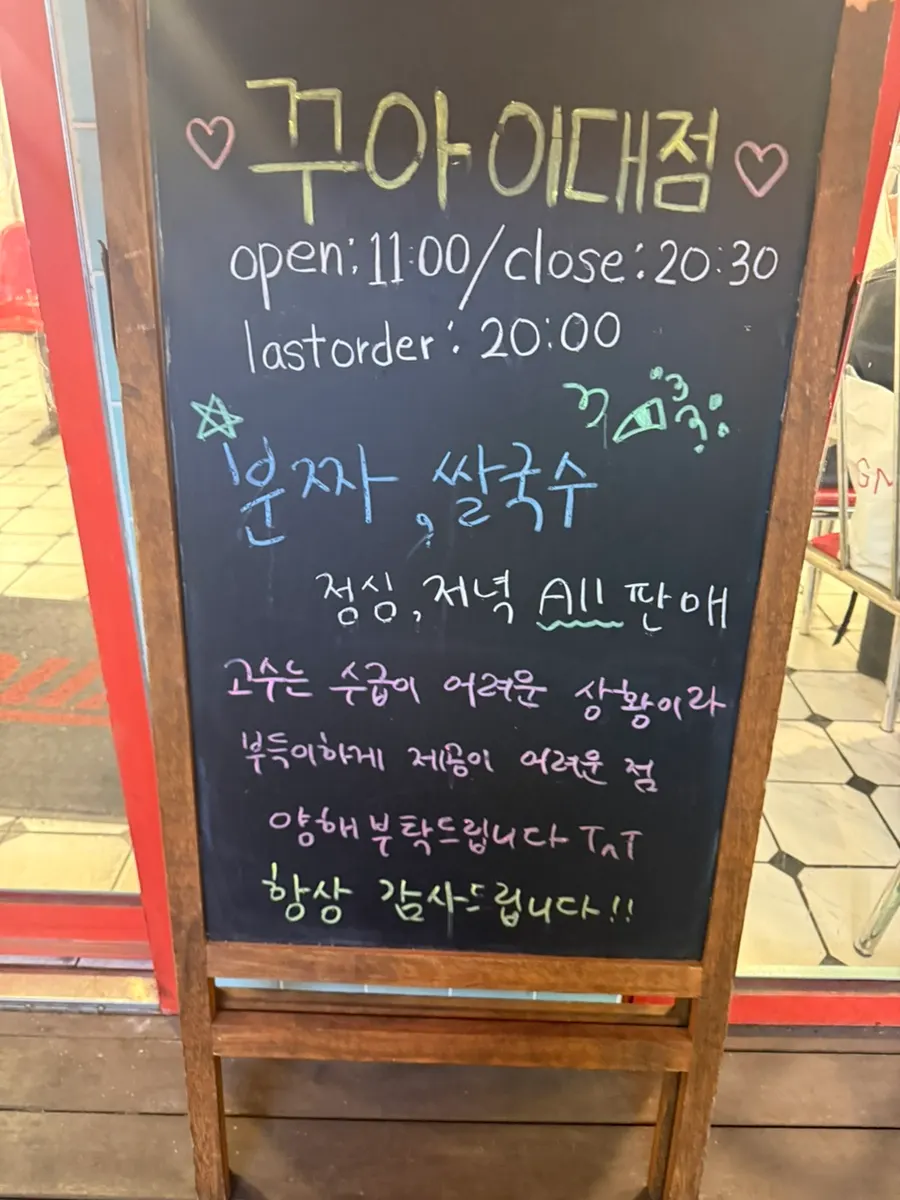 ♡ 꾸아 이대점 ♡
open: 11:00 / close: 20:30
lastorder: 20:00
☆ 분짜, 쌀국수
점심, 저녁 All 판매
고수는 수급이 어려운 상황이라
부득이하게 제공이 어려운 점
양해부탁드립니다 TㅅT
항상 감사드립니다!!